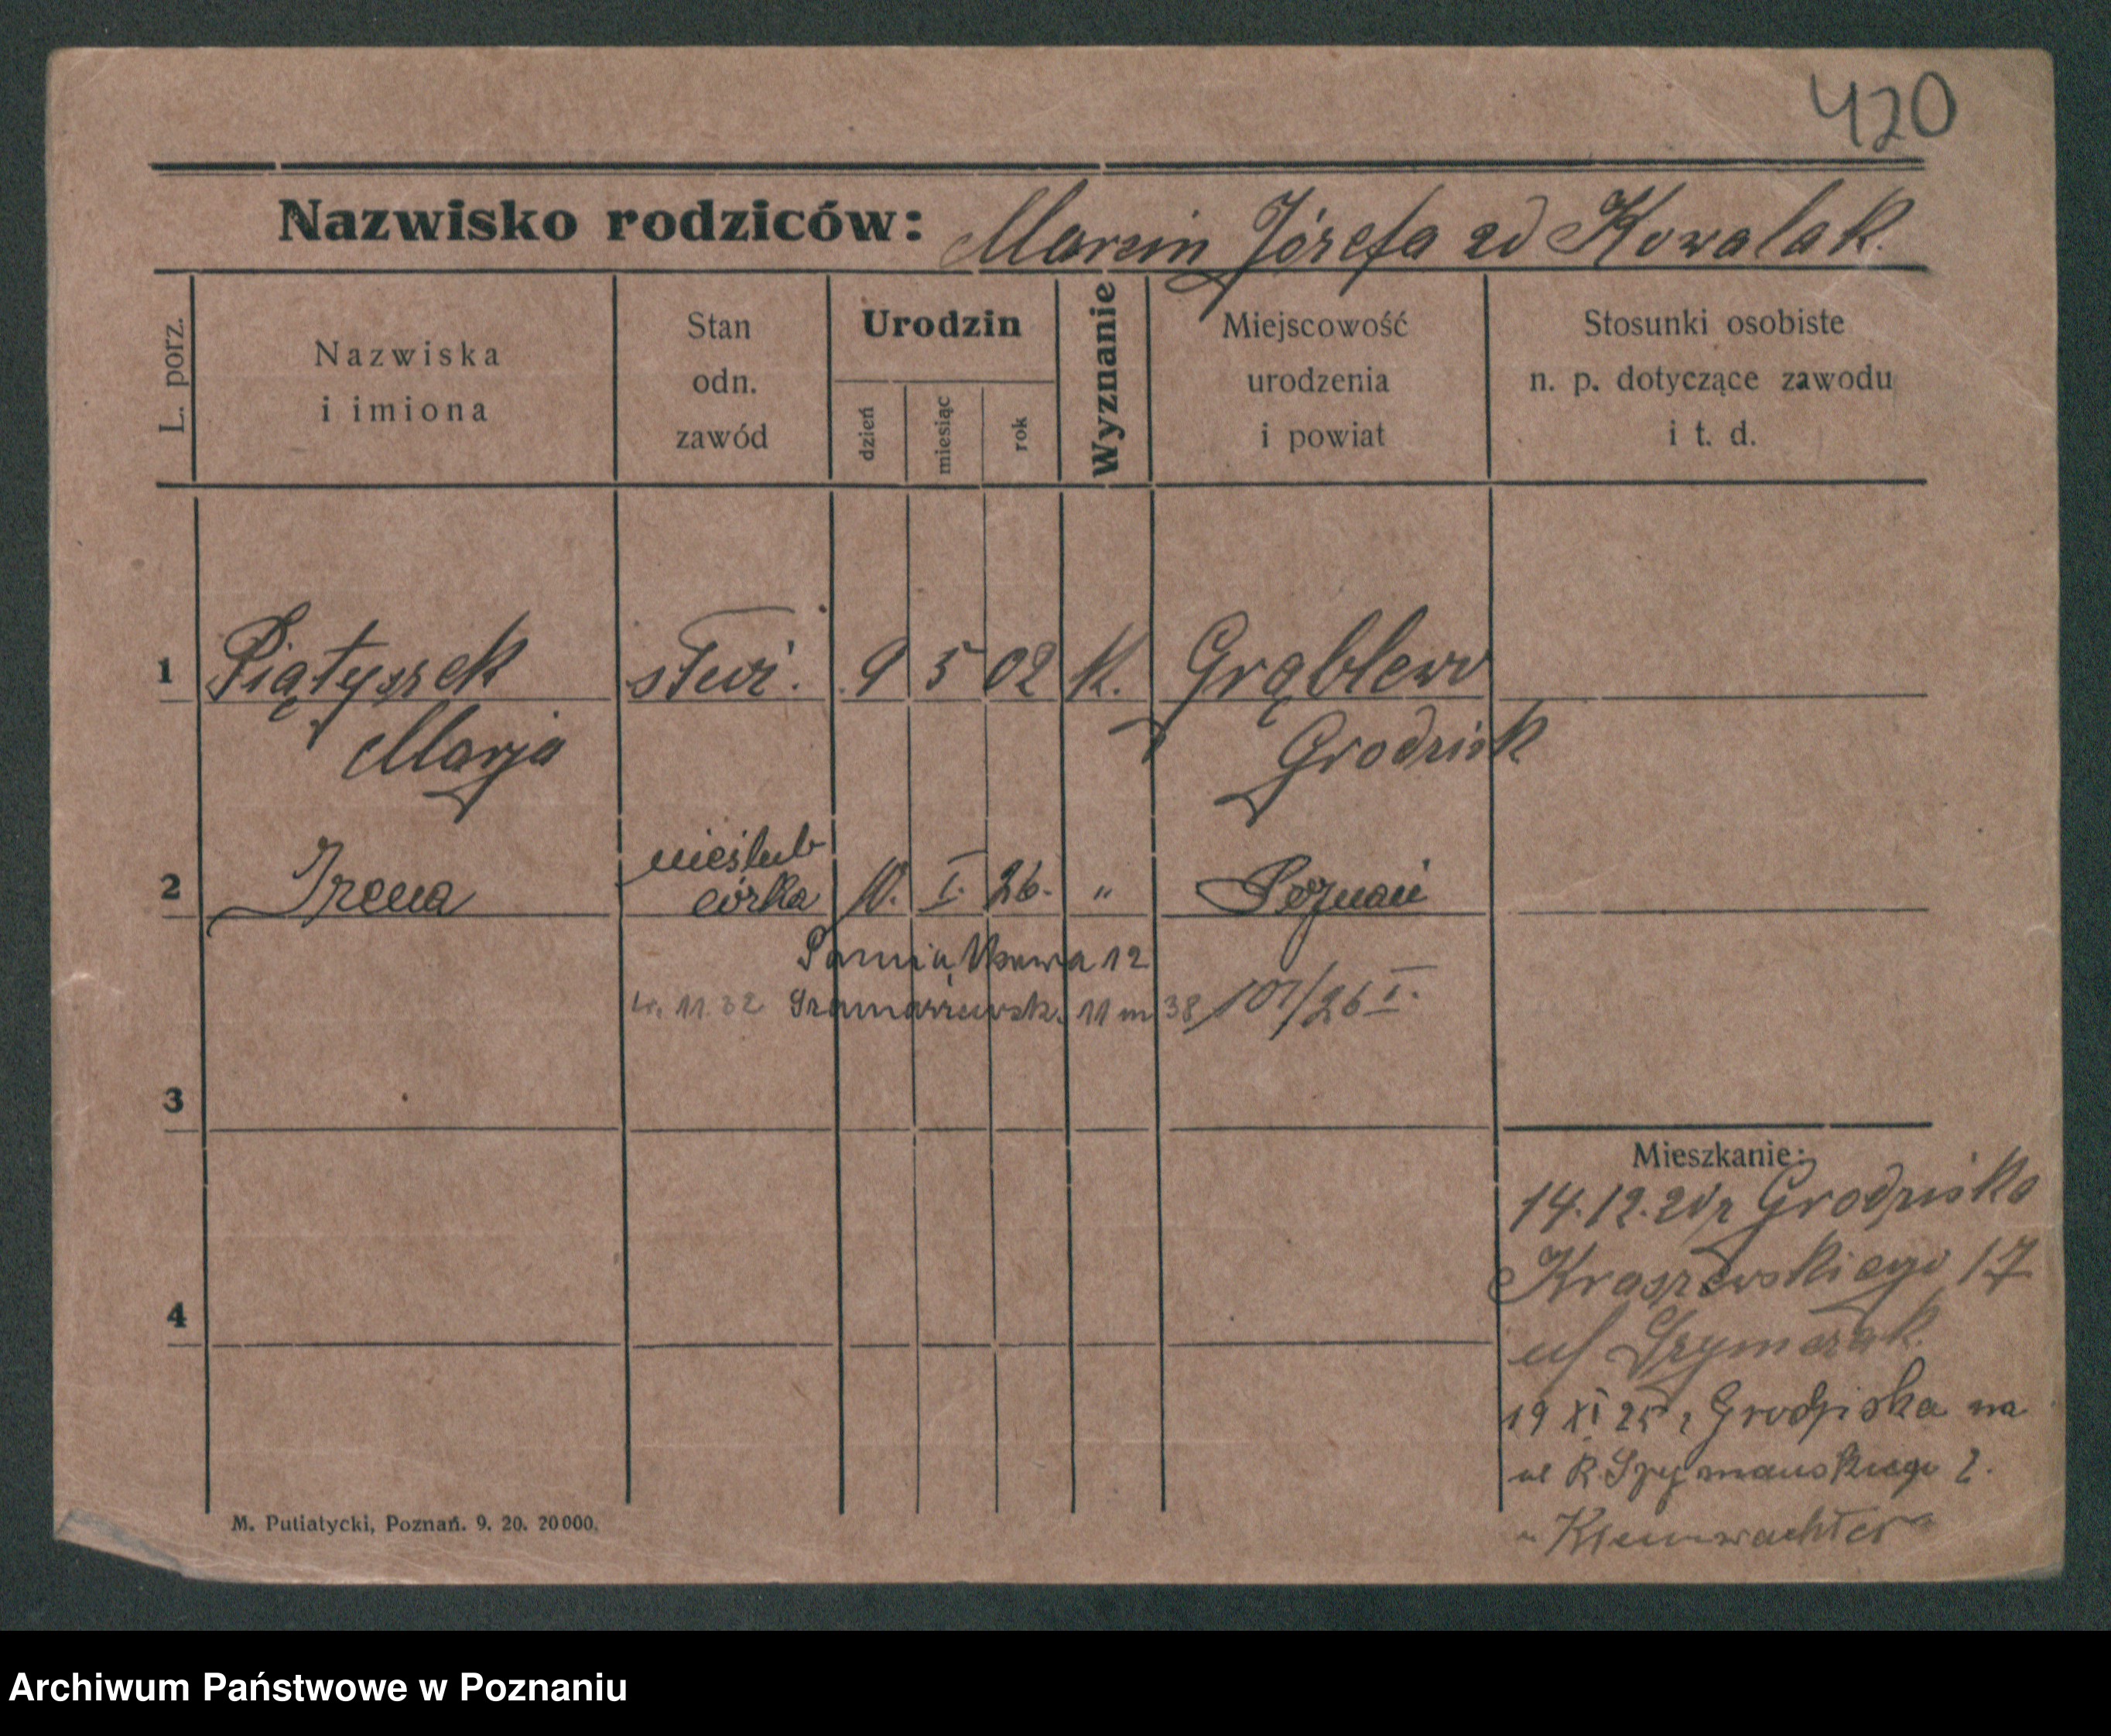 420
Nazwisko rodziców: Marcin Józefa zd Kowalak.
L. porz.
Nazwiska
i imiona
Stan
odn.
zawód
Urodzin
dzień
miesiąc
rok
Wyznanie
Miejscowość
urodzenia
i powiat
Stosunki osobiste
n. p. dotyczące zawodu
i t. d.
1 Piątyszek służ. 9 5 02 K. Grąblewo
Marja Grodzisk
nieślub
2 Irena córka 10. I. 26. " Poznań
12
11.32 11 m 38 101/26 I.
3
Mieszkanie:
14.12. z Grodziska
Kraszewskiego 17
4
u/ Szymczak
19 XI 25 z Grodziska na
ul R. Szymańskiego 2.
Kleinwachter
M. Putiatycki, Poznań. 9. 20. 20000.
Archiwum Państwowe w Poznaniu